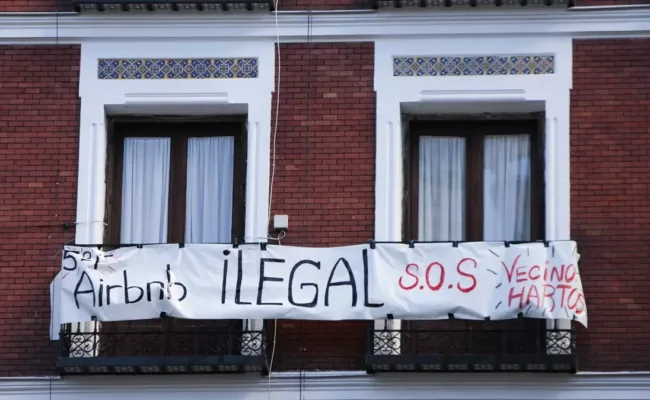 5º1ª
Airbnb iLEGAL S.O.S VECINOS
HARTOS